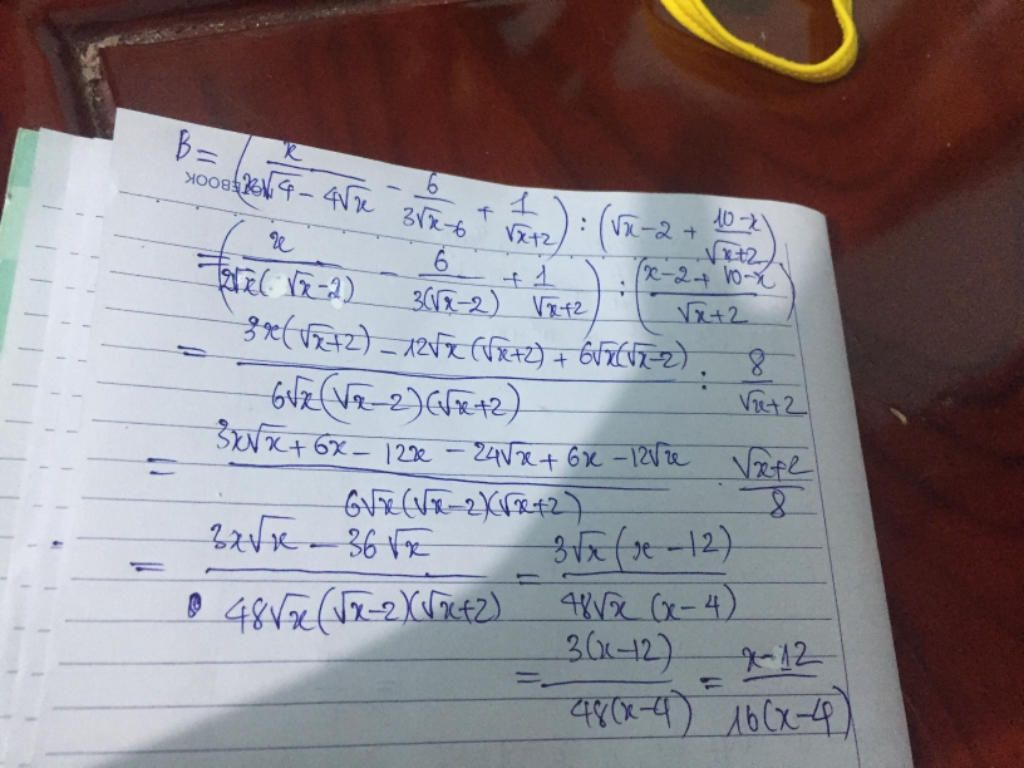 B = (x/(x√4 - 4√x) - 6/(3√x-6) + 1/(√x+2)) : (√x-2 + (10-x)/(√x+2))
= (x/(2√x(√x-2)) - 6/(3(√x-2)) + 1/(√x+2)) : ((x-2+10-x)/(√x+2))
= (3x(√x+2) - 12√x(√x+2) + 6√x(√x-2))/(6√x(√x-2)(√x+2)) : 8/(√x+2)
= (3x√x + 6x - 12x - 24√x + 6x - 12√x)/(6√x(√x-2)(√x+2)) . (√x+2)/8
= (3x√x - 36√x)/(48√x(√x-2)(√x+2)) = (3√x(x-12))/(48√x(x-4))
= (3(x-12))/(48(x-4)) = (x-12)/(16(x-4))